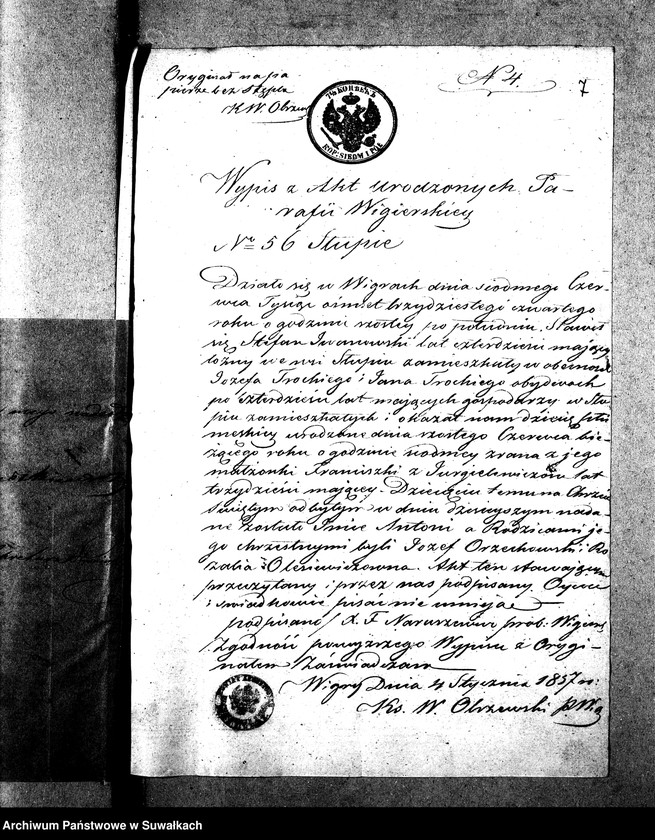 Oryginał na pa
pierze bez stępla
K W. Obrzew
N 4.
7
7½ КОПѢЕКЪ
KOP: SREBR: I POŁ
Wypis z Akt urodzonych Pa-
rafii Wigierskiey
No 56 Słupie
Działo się w Wigrach dnia siodmego Czer-
wca Tysiąc ośmset trzydziestego czwartego
roku o godzinie szostey po południu. Stawił
się Stefan Iwanowski lat czterdzieści mający
we wsi Słupiu zamieszkały w obecnoś
Jozefa Trochiego i Jana Trochiego obydwoch
po czterdzieści lat mających gospodarzy w Słu
piu zamieszkałych i okazał nam dziecię płci
męskiey urodzone dnia szostego Czerwca bie-
żącego roku o godzinie siodmey zrana z jego
małżonki Franciszki z Jurgielewiczow lat
trzydzieści mającey. Dziecięciu temu na Chrzcie
Swiętym odbytym w dniu dzisieyszym nada-
ne zostało Imie Antoni a Rodzicami je-
go chrzestnymi byli Jozef Orzechowski i Ro
zalia Olesiewiczowna. Akt ten stawającym
przeczytany i przez nas podpisany. Oyciec
i swiadkowie pisać nie umieją
podpisano / X. F Naruszewicz prob. Wigiers
Zgodność powyższego Wypisu z Oryg-
inałem Zaświadczam
Wigry Dnia 4 Stycznia 1857 r:
Ks. W. Obrzewski P. Wig
Archiwum Państwowe w Suwałkach